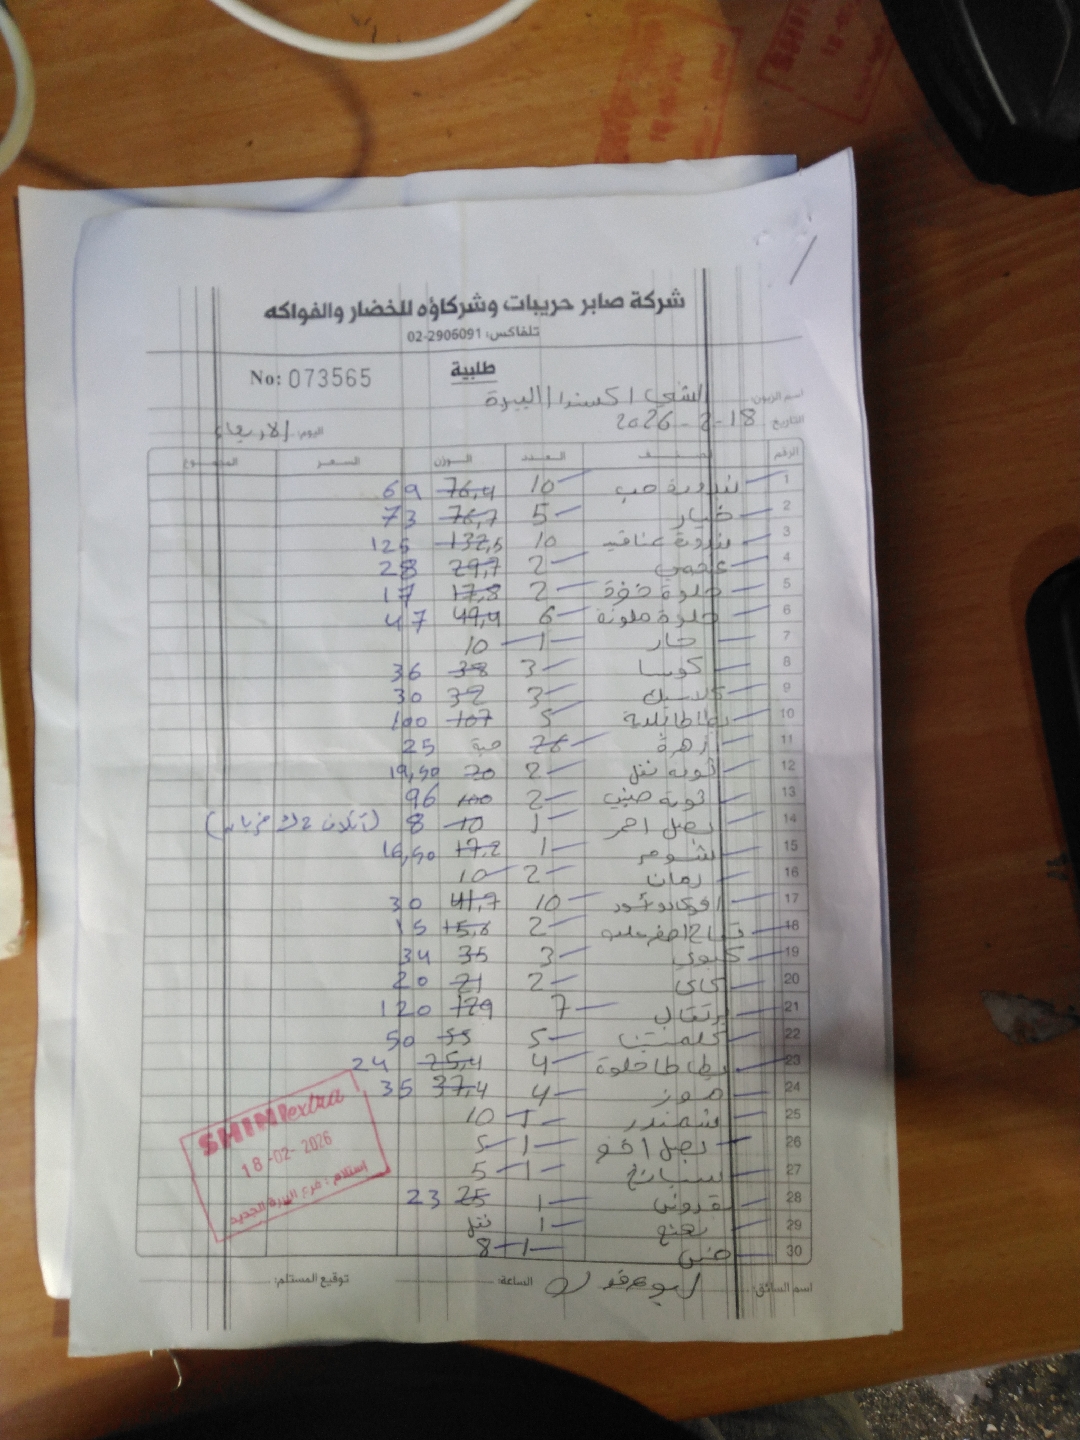 شركة صابر حريبات وشركاؤه للخضار والفواكه
تلفاكس: 02-2906091
طلبية
No: 073565
اسم الزبون: الشني اكسترا البيرة
التاريخ: 18-2-2026 اليوم: الاربعاء
الرقم الصنف العدد الوزن السعر المجموع
1 بندورة حب 10 76,4 69
2 خيار 5 76,7 73
3 بندورة عناقيد 10 132,5 125
4 عجمي 2 29,7 28
5 حلوة 2 17,8 17
6 حلوة ملونة 6 49,4 47
7 حار 1 10
8 كوسا 3 38 36
9 3 32 30
10 بطاطا بلدية 5 107 100
11 زهرة 26 حبة 25
12 ثومة نتل 2 20 19,50
13 ثومة 2 100 96
14 بصل احمر 1 10 8
15 شومر 1 17,2 16,50
16 رمان 2 10
17 افوكادو 10 41,7 30
18 تفاح اصفر 2 15,6 15
19 كيوي 3 35 34
20 كاكا 2 21 20
21 برتقال 7 129 120
22 كلمنتينا 5 55 50
23 بطاطا حلوة 4 25,4 24
24 موز 4 37,4 35
25 شمندر 1 10
26 بصل اخضر 1 5
27 سبانخ 1 5
28 بقدونس 1 25 23
29 نعنع 1 نتل
30 خس 1 8
SHINI extra
18-02-2026
استلام: فرع البيرة الجديد
اسم السائق: الساعة: توقيع المستلم: